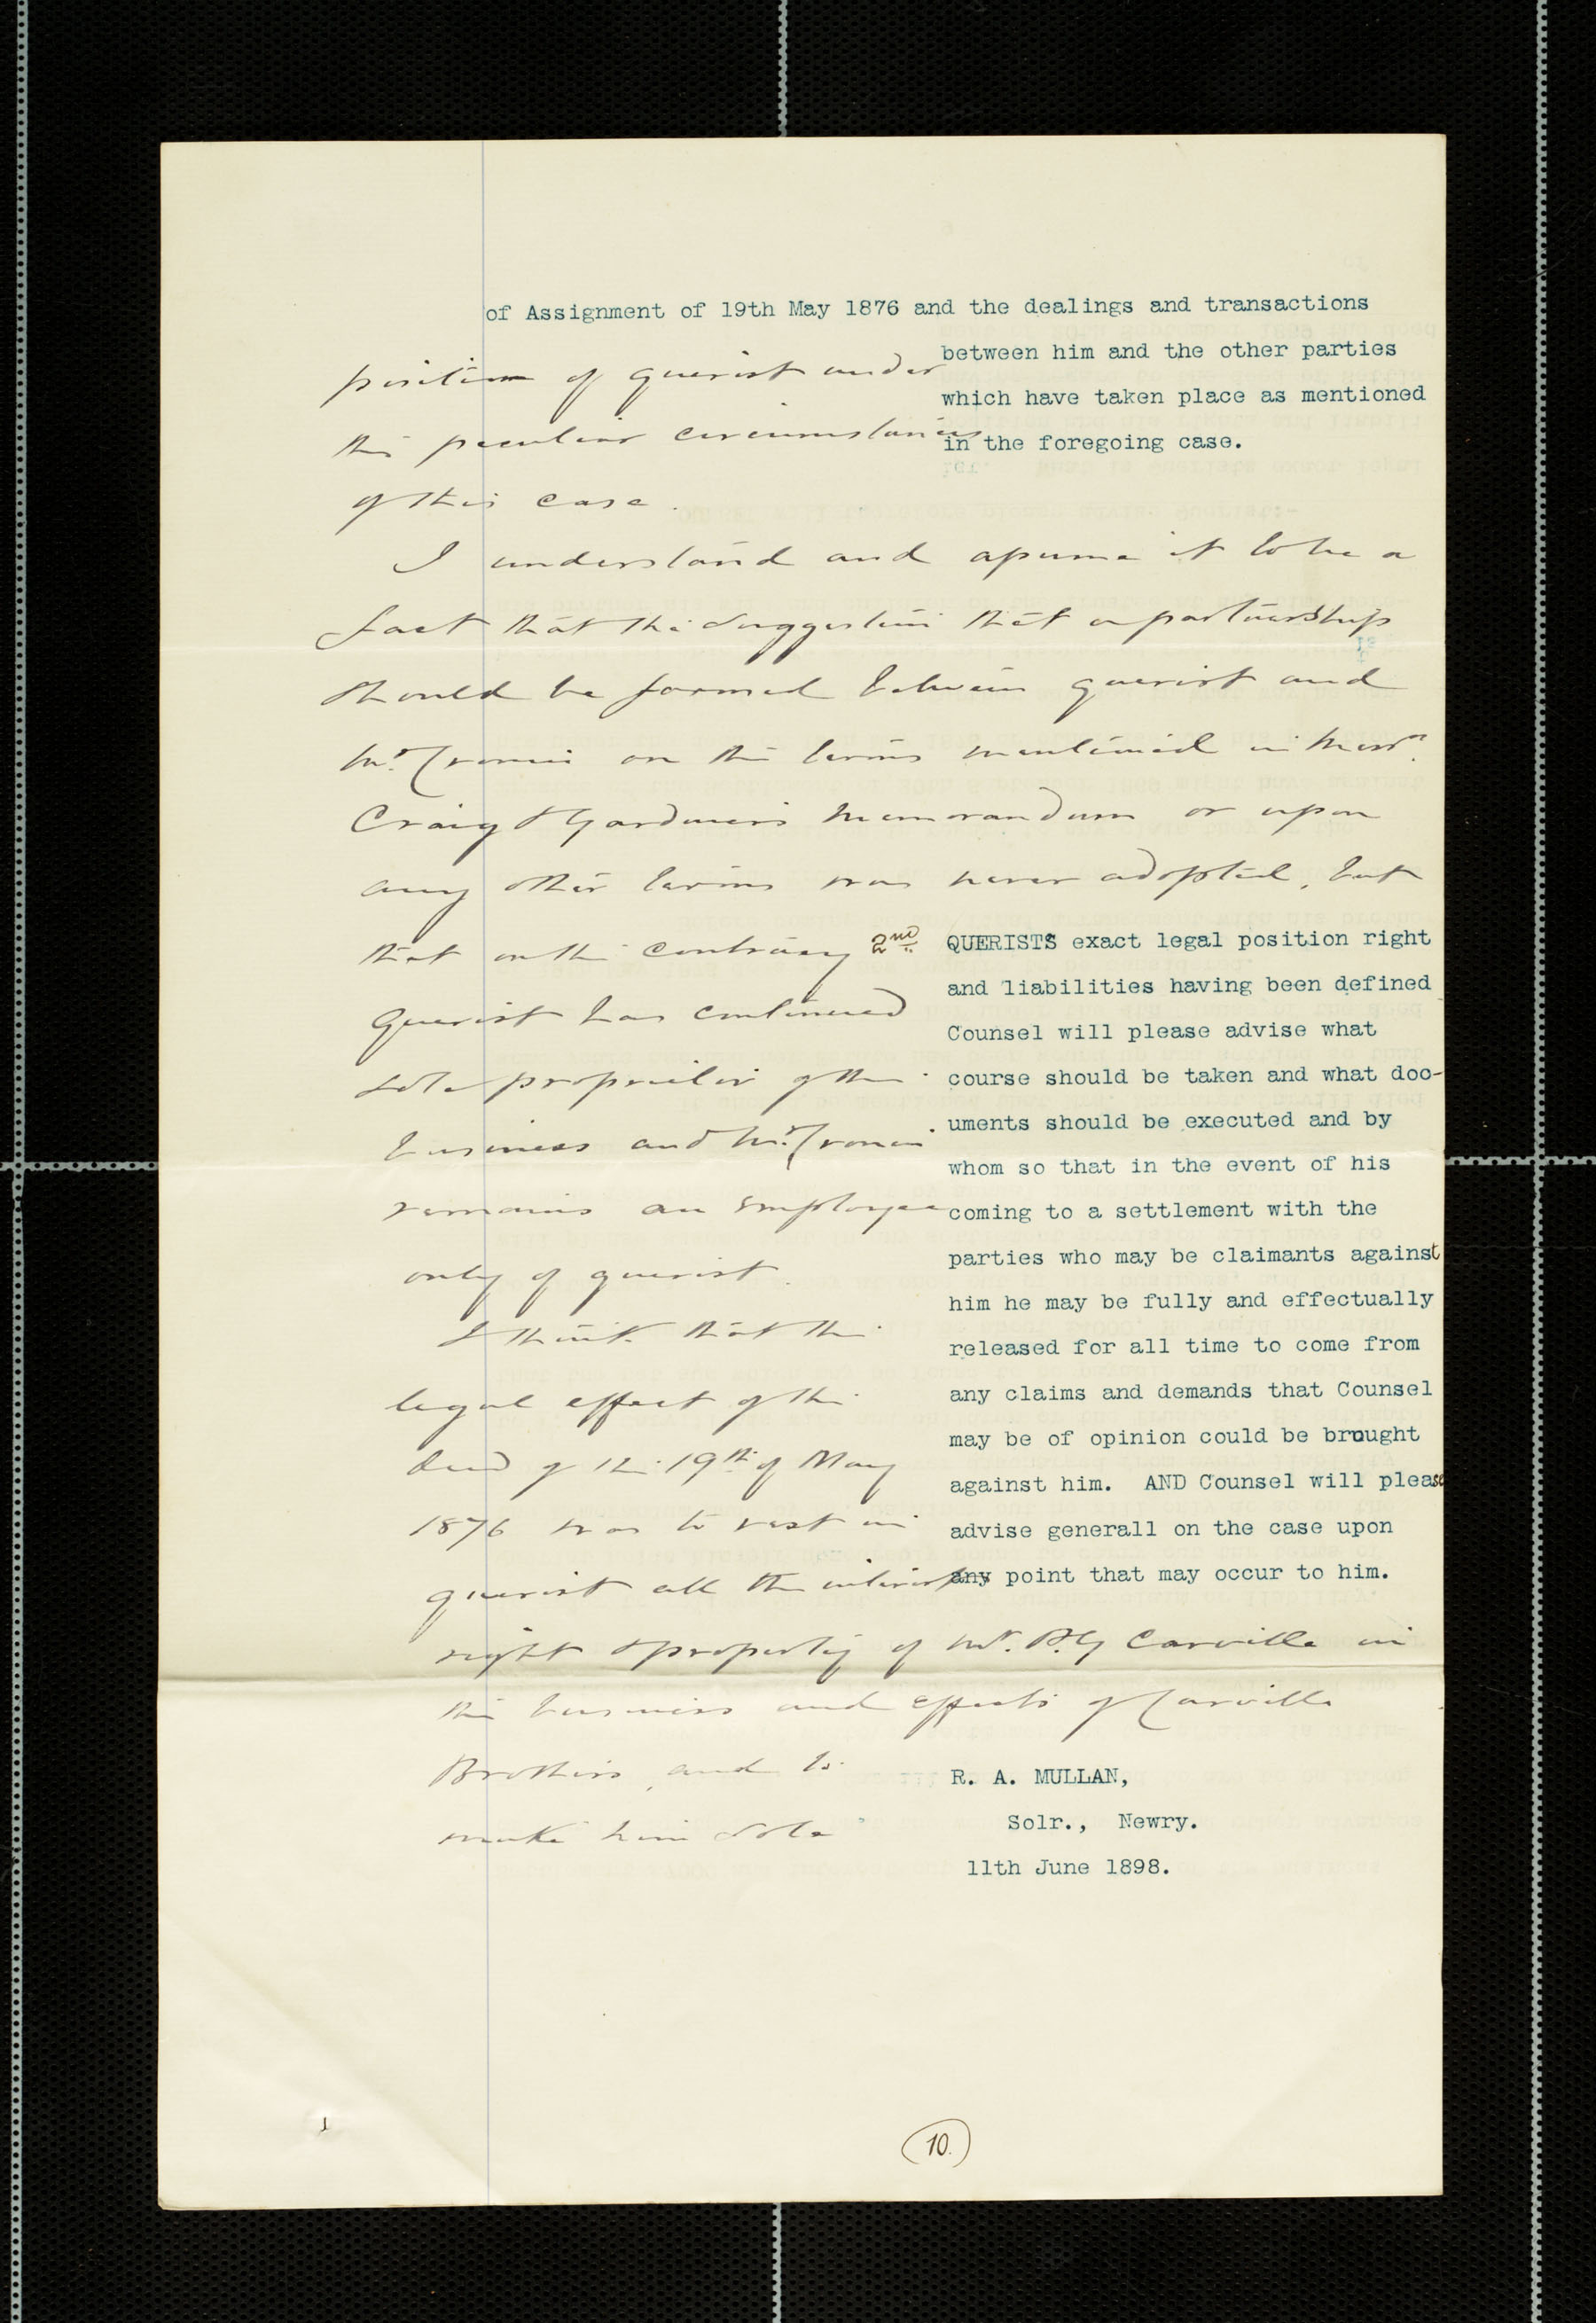 of Assignment of 19th May 1876 and the dealings and transactions
between him and the other parties
which have taken place as mentioned
in the foregoing case.
position of querist under
the peculiar circumstances
of this case.
I understand and assume it to be a
fact that the suggestion that a partnership
should be formed between querist and
Mr. Cronin on the terms mentioned in Messrs.
Craig & Gardner's memorandum or upon
any other terms was never adopted, but
that on the contrary
querist has continued
sole proprietor of the
business and Mr. Cronin
remains an employee
only of querist.
I think that the
legal effect of the
deed of the 19th of May
1876 was to vest in
querist all the interest
right & property of Mr. P.G Carvill in
the business and effects of Carvill
Brothers, and to
make him sole
2nd QUERISTS exact legal position right
and liabilities having been defined
Counsel will please advise what
course should be taken and what doc-
uments should be executed and by
whom so that in the event of his
coming to a settlement with the
parties who may be claimants against
him he may be fully and effectually
released for all time to come from
any claims and demands that Counsel
may be of opinion could be brought
against him. AND Counsel will please
advise generall on the case upon
any point that may occur to him.
R. A. MULLAN,
Solr., Newry.
11th June 1898.
10.